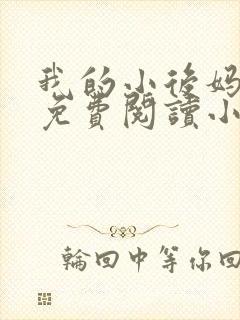 我的小後妈
免費閱讀小
輪回中等你回